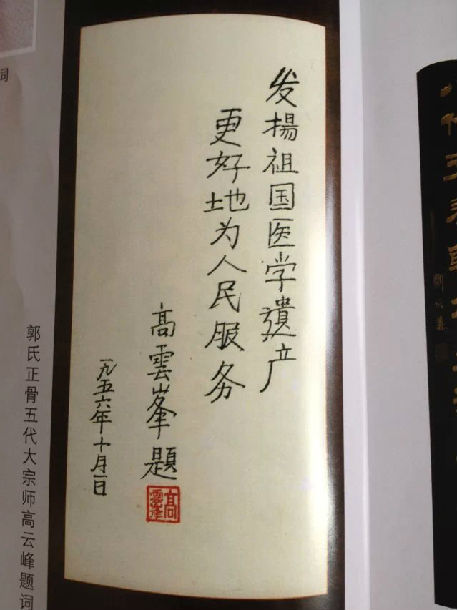 发揚祖国医学遺产
更好地为人民服务
高雲峯題
一九五六年十月一日
高雲峯
郭氏正骨五代大宗师高云峰题词
词